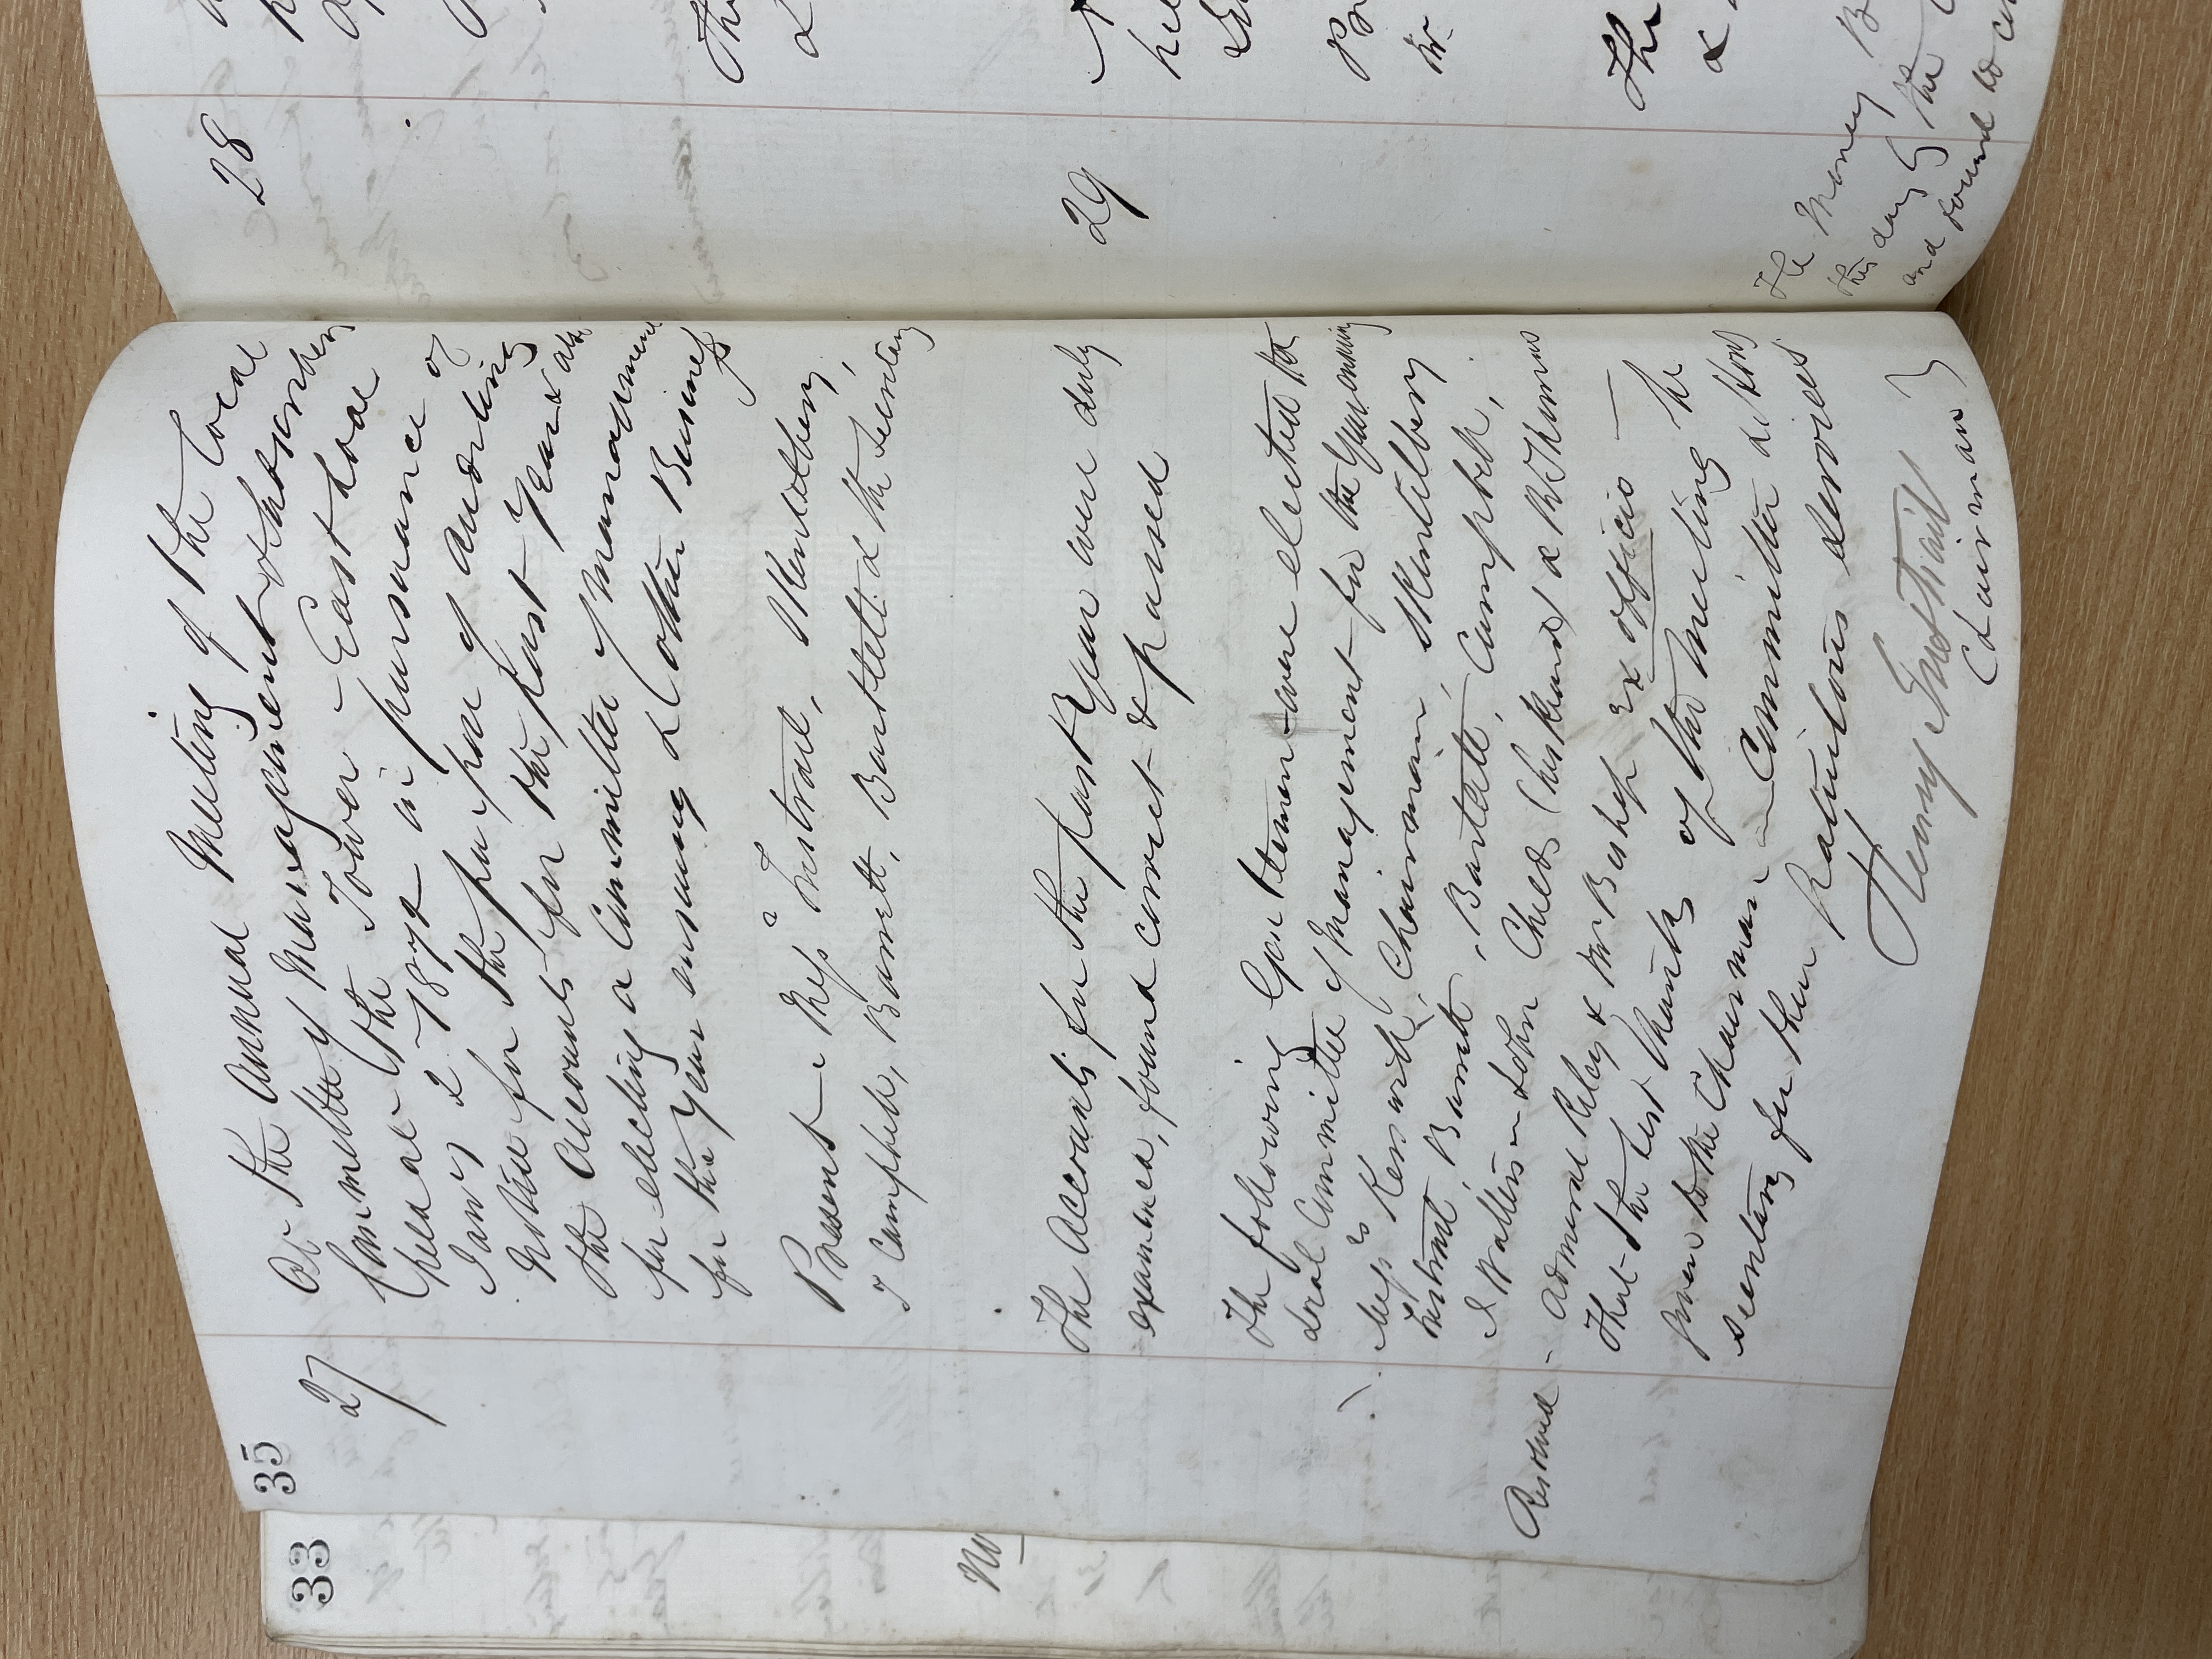 33
35
No
27
At the Annual Meeting of the Local
Committee of Management & Subscribers
held at the Tower - East Looe
Jany 2 1872 in pursuance of
Notice for the purpose of Auditing
the Accounts for the past Year & also
for electing a Committee of Management
for the Year ensuing & other Business
Present - Messrs
Campbell, Barrett, Bartlett & the Secretary
The Accounts for the past Year were duly
examined, found correct & passed
The following Gentlemen were elected the
Local Committee of Management for the Year ensuing
Messrs Keswick, Chairman,
Barrett, Bartlett, Campbell,
& R Thomas
Admiral Riley & Mr Bishop ex officio
Resolved - That the best thanks of this Meeting be
given to the Chairman - Committee &
Secretary for their gratuitous services
Henry
Chairman
28
The
&
29
The
&
The Money B
this day by the
and found to